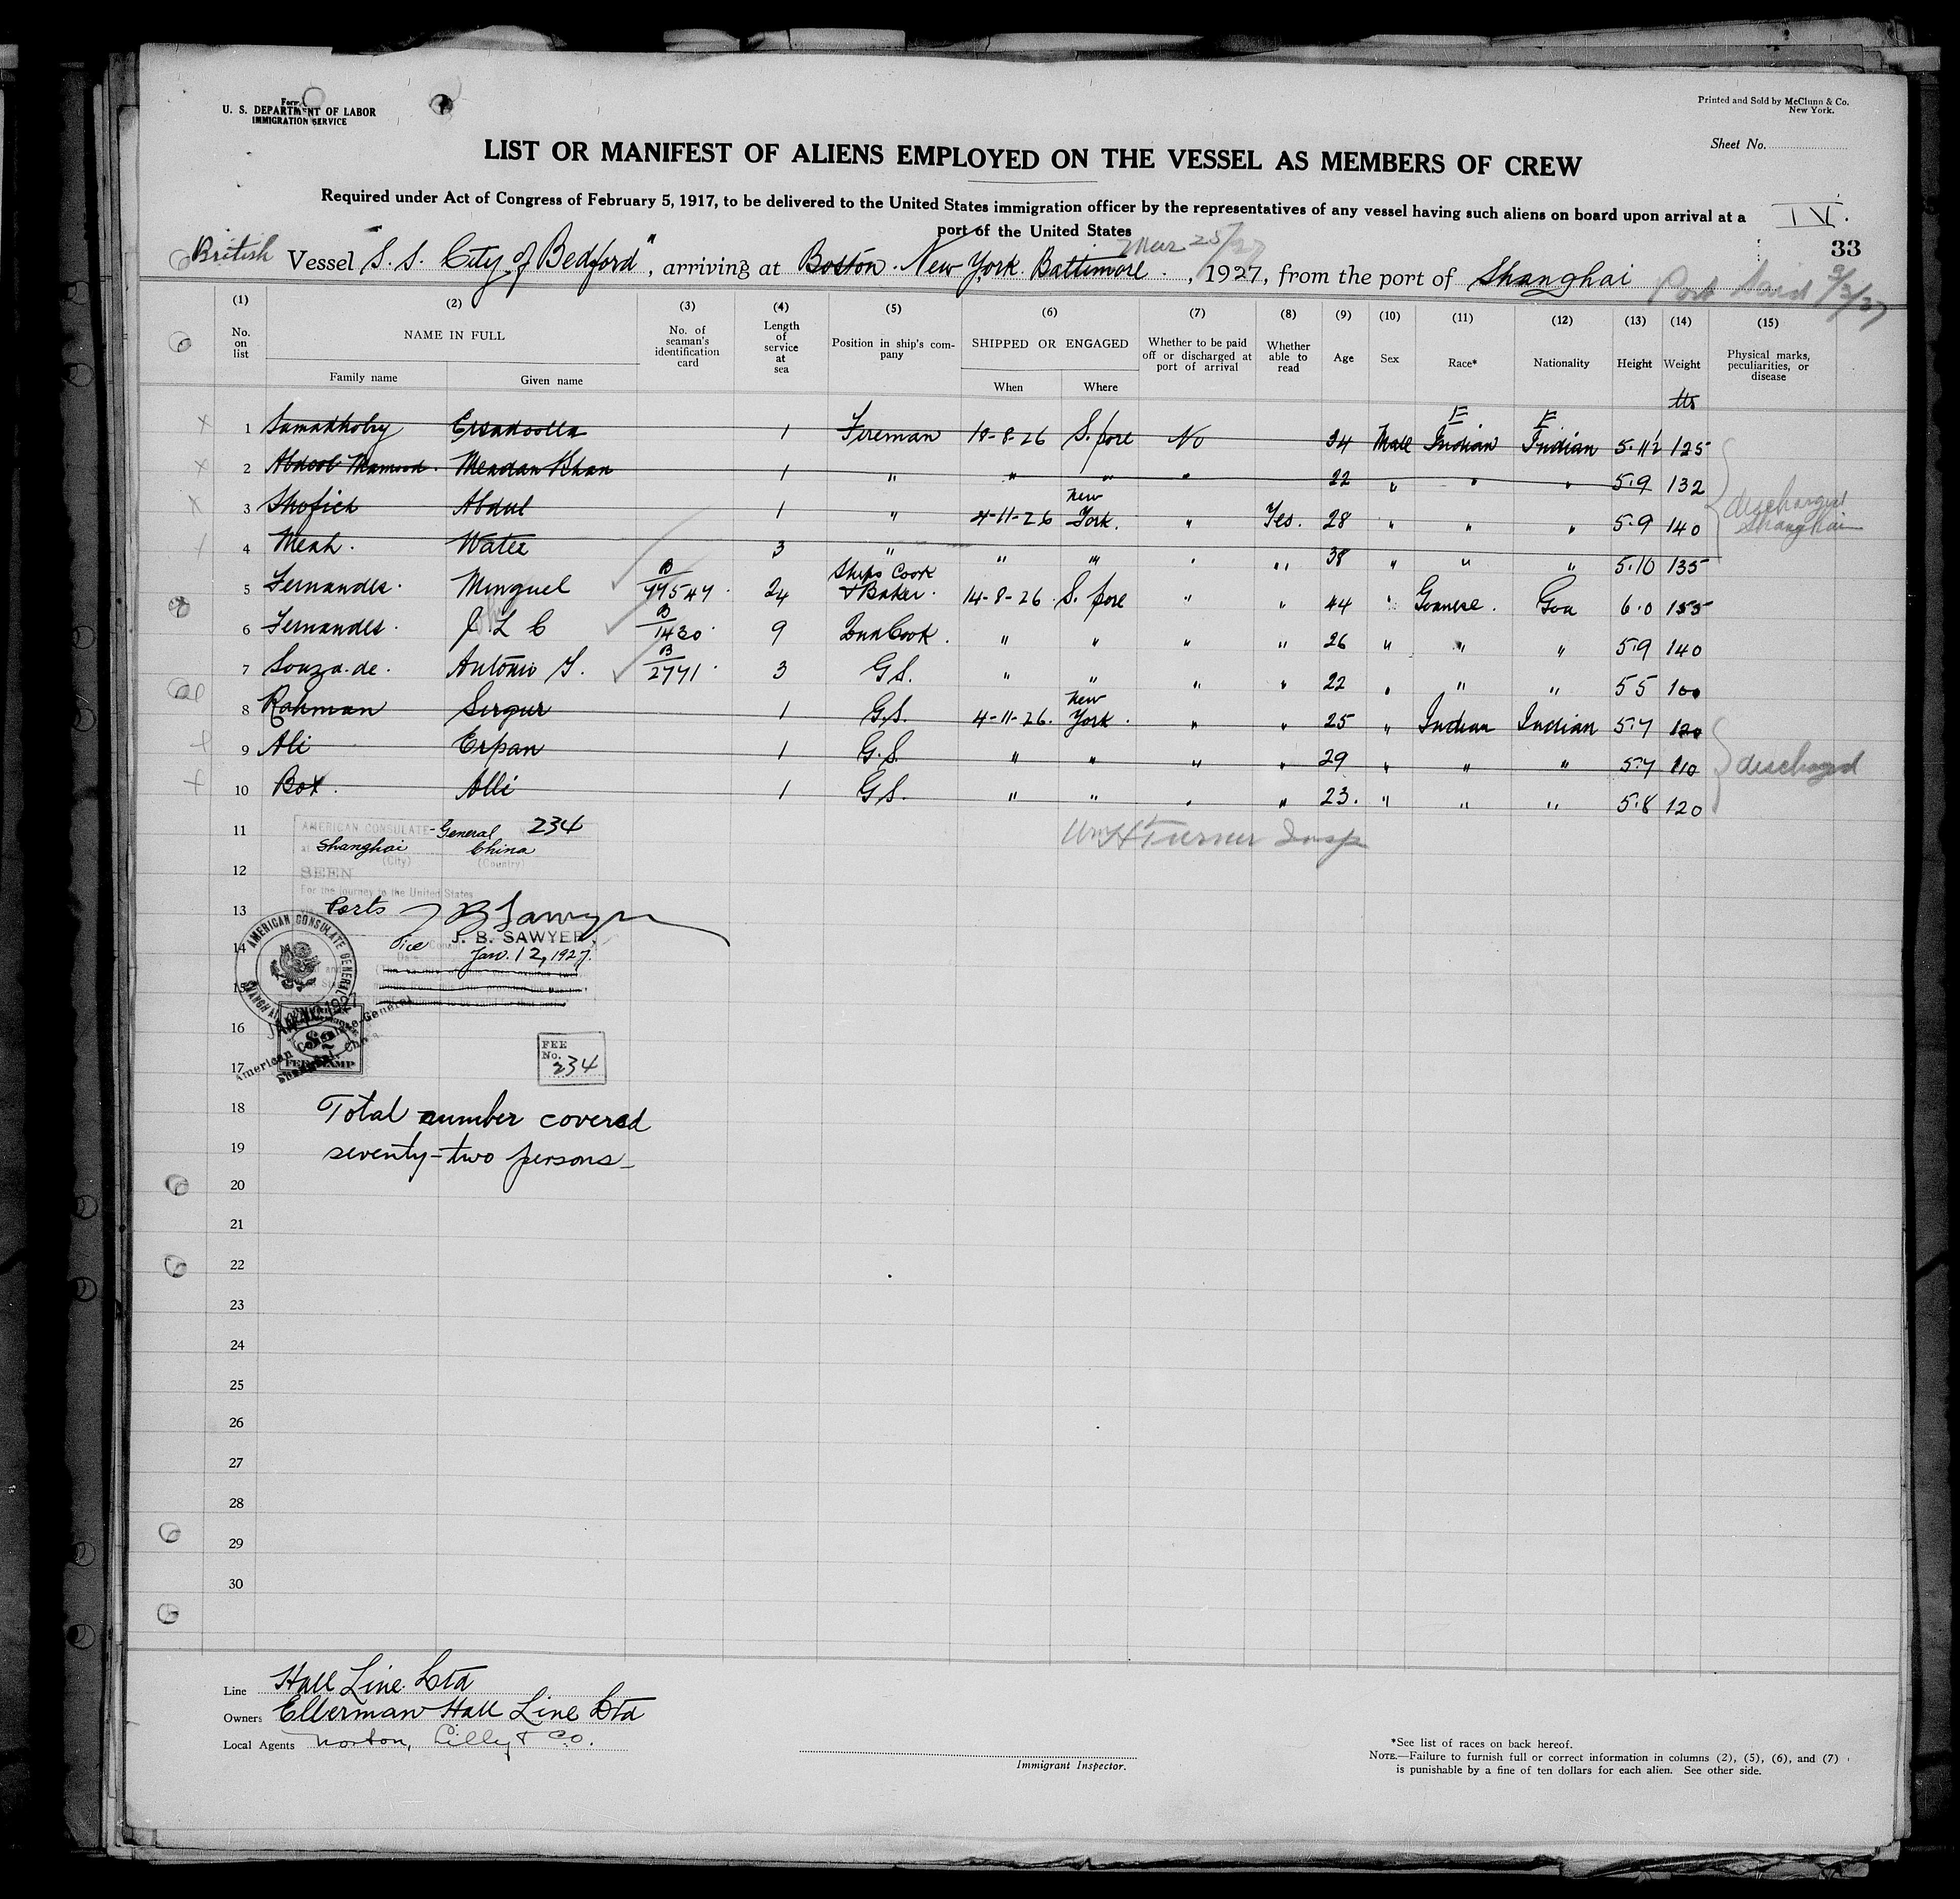 Form
U. S. DEPARTMENT OF LABOR
IMMIGRATION SERVICE
Printed and Sold by McClunn & Co.
New York.
Sheet No.
LIST OR MANIFEST OF ALIENS EMPLOYED ON THE VESSEL AS MEMBERS OF CREW
Required under Act of Congress of February 5, 1917, to be delivered to the United States immigration officer by the representatives of any vessel having such aliens on board upon arrival at a
port of the United States
IV.
33
Mar 25/27
British Vessel "S. S. City of Bedford", arriving at Boston. New York. Baltimore., 1927, from the port of Shanghai Port Said 9/3/27
(1) (2) (3) (4) (5) (6) (7) (8) (9) (10) (11) (12) (13) (14) (15)
No. on list NAME IN FULL No. of seaman's identification card Length of service at sea Position in ship's company SHIPPED OR ENGAGED Whether to be paid off or discharged at port of arrival Whether able to read Age Sex Race* Nationality Height Weight Physical marks, peculiarities, or disease
Family name Given name When Where
lbs
1 Samakholry Ersadoolla 1 Fireman 18-8-26 S.pore No 34 Male Indian Indian 5.11½ 125
2 Abdool Mamood. Meadan Khan 1 " " " " 22 " " " 5.9 132
3 Shofich Abdul 1 " 4-11-26 New York. " Yes. 28 " " " 5.9 140
discharged Shanghai
4 Meah. Water 3 " " " " " 38 " " " 5.10 135
5 Fernandes. Minguel B/77547. 24 Ships Cook & Baker. 14-8-26. S. pore " " 44 " Goanese. Goa 6.0 155
6 Fernandes. J L C B/1430. 9 2nd Cook. " " " " 26 " " " 5.9 140
7 Souza.de. Antonio J. B/2771. 3 G.S. " " " " 22 " " " 5 5 100
8 Rahman Sirgur 1 G.S. 4-11-26. New York. " " 25 " Indian Indian 5.7 120
9 Ali Erpan 1 G.S. " " " " 29 " " " 5.7 110
discharged
10 Box. Alli 1 G.S. " " " " 23. " " " 5.8 120
11
Wm H Turner Insp
AMERICAN CONSULATE-General 234
at Shanghai China
(City) (Country)
12
SEEN
For the journey to the United States
13
Ports J B Sawyer
14
Vice Consul J. B. SAWYER.
Date Jan. 12, 1927.
AMERICAN CONSULATE GENERAL SHANGHAI
15
JAN 12 1927
16
American Consulate-General
Shanghai, China.
$2
FEE STAMP
17
FEE
No.
234
18
Total number covered
19
seventy-two persons
20
21
22
23
24
25
26
27
28
29
30
Line Hall Line Ltd
Owners Ellerman Hall Line Ltd
Local Agents Norton, Lilly & Co.
Immigrant Inspector.
*See list of races on back hereof.
NOTE.—Failure to furnish full or correct information in columns (2), (5), (6), and (7)
is punishable by a fine of ten dollars for each alien. See other side.